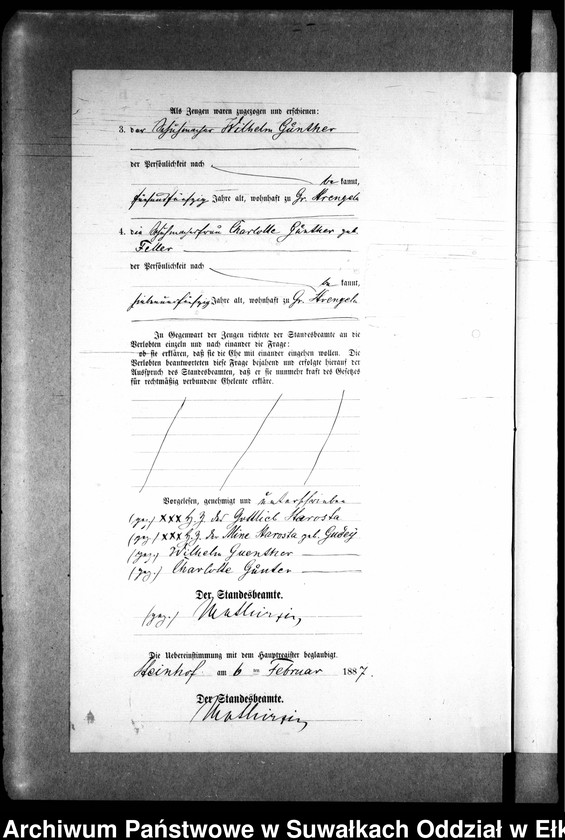 Als Zeugen waren zugezogen und erschienen:
3. der Schuhmacher Wilhelm Günther
der Persönlichkeit nach
be kannt,
fünfundfünfzig Jahre alt, wohnhaft zu Gr. Strengeln
4. die Schuhmacherfrau Charlotte Günther geb.
Feller
der Persönlichkeit nach
be kannt,
Jahre alt, wohnhaft zu Gr. Strengeln
In Gegenwart der Zeugen richtete der Standesbeamte an die
Verlobten einzeln und nach einander die Frage:
ob sie erklären, daß sie die Ehe mit einander eingehen wollen. Die
Verlobten beantworteten diese Frage bejahend und erfolgte hierauf der
Ausspruch des Standesbeamten, daß er sie nunmehr kraft des Gesetzes
für rechtmäßig verbundene Eheleute erkläre.
Vorgelesen, genehmigt und unterschrieben
(gez.) XXX H. Z. des Gottlieb Starosta
(gez.) XXX H. Z. der Mine Starosta geb. Gudey
(gez.) Wilhelm Guenther
(gez.) Charlotte Günter
Der Standesbeamte.
(gez.)
Die Uebereinstimmung mit dem Hauptregister beglaubigt.
Steinhof am 6 ten Februar 1887.
Der Standesbeamte.
Archiwum Państwowe w Suwałkach Oddział w Ełk